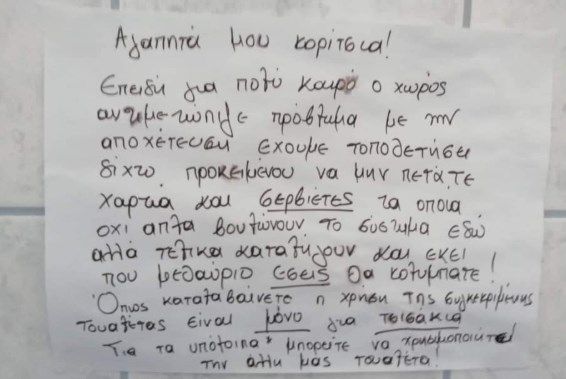 Αγαπητά μου κορίτσια!
Επειδή για πολύ καιρό ο χώρος
αντιμετώπιζε πρόβλημα με την
αποχέτευση έχουμε τοποθετήσει
δίχτυ προκειμένου να μην πετάτε
χαρτιά και σερβιέτες τα οποία
όχι απλά βουλώνουν το σύστημα εδώ
αλλά τελικά καταλήγουν και εκεί
που μεθαύριο εσείς θα κολυμπάτε!
Όπως καταλαβαίνετε η χρήση της συγκεκριμένης
τουαλέτας είναι μόνο για τσισάκια
Για τα υπόλοιπα* μπορείτε να χρησιμοποιήτε
την άλλη μας τουαλέτα!